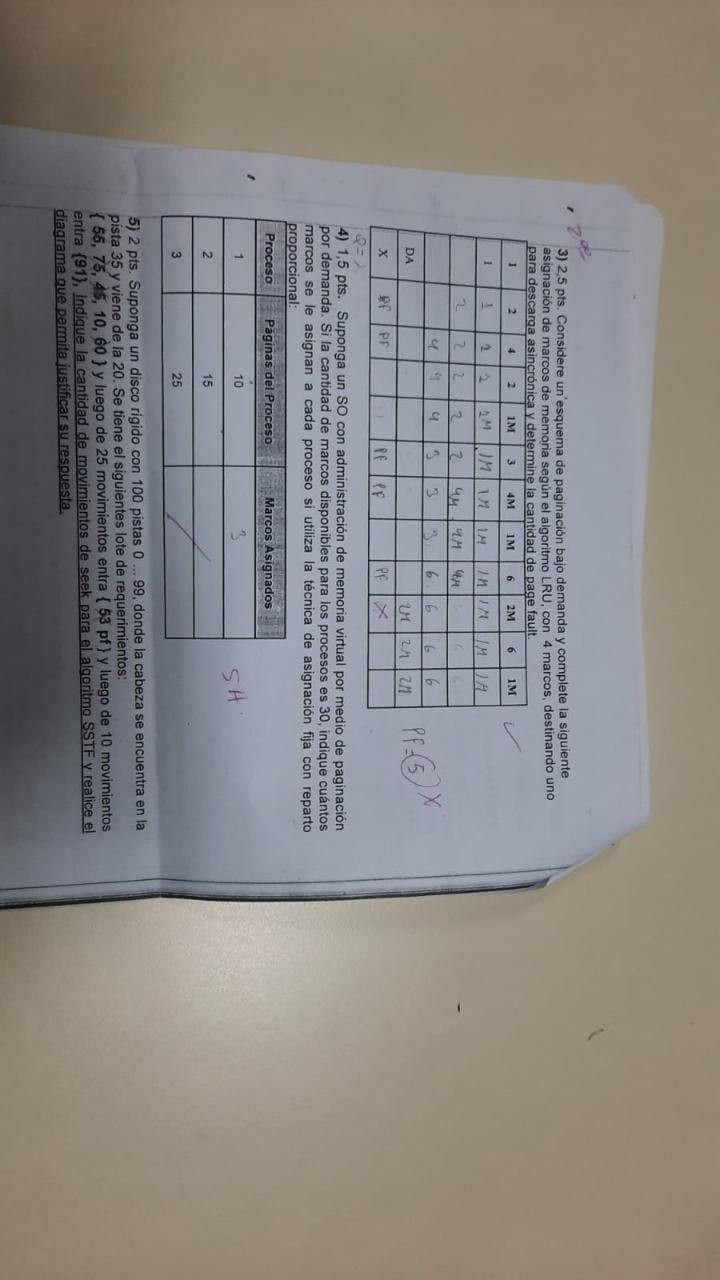 3) 2,5 pts. Considere un esquema de paginación bajo demanda y complete la siguiente
asignación de marcos de memoria según el algoritmo LRU, con 4 marcos, destinando uno
para descarga asincrónica y determine la cantidad de page fault.
1 2 4 2 1M 3 4M 1M 6 2M 6 1M
1 1 1 1 1M 1M 1M 1M 1M 1M 1M 1M
2 2 2 2 2 4M 4M 4M 6 6 6
4 4 4 3 3 3 6 6 6 6
DA 2M 2M 2M
X PF PF PF PF PF X
PF = 5 X
4) 1,5 pts. Suponga un SO con administración de memoria virtual por medio de paginación
por demanda. Si la cantidad de marcos disponibles para los procesos es 30, indique cuántos
marcos se le asignan a cada proceso si utiliza la técnica de asignación fija con reparto
proporcional:
Proceso Páginas del Proceso Marcos Asignados
1 10 3
2 15
3 25
5) 2 pts. Suponga un disco rígido con 100 pistas 0 ... 99, donde la cabeza se encuentra en la
pista 35 y viene de la 20. Se tiene el siguientes lote de requerimientos:
{ 55, 75, 45, 10, 60 } y luego de 25 movimientos entra { 53 pf } y luego de 10 movimientos
entra {91}. Indique la cantidad de movimientos de seek para el algoritmo SSTF y realice el
diagrama que permita justificar su respuesta.